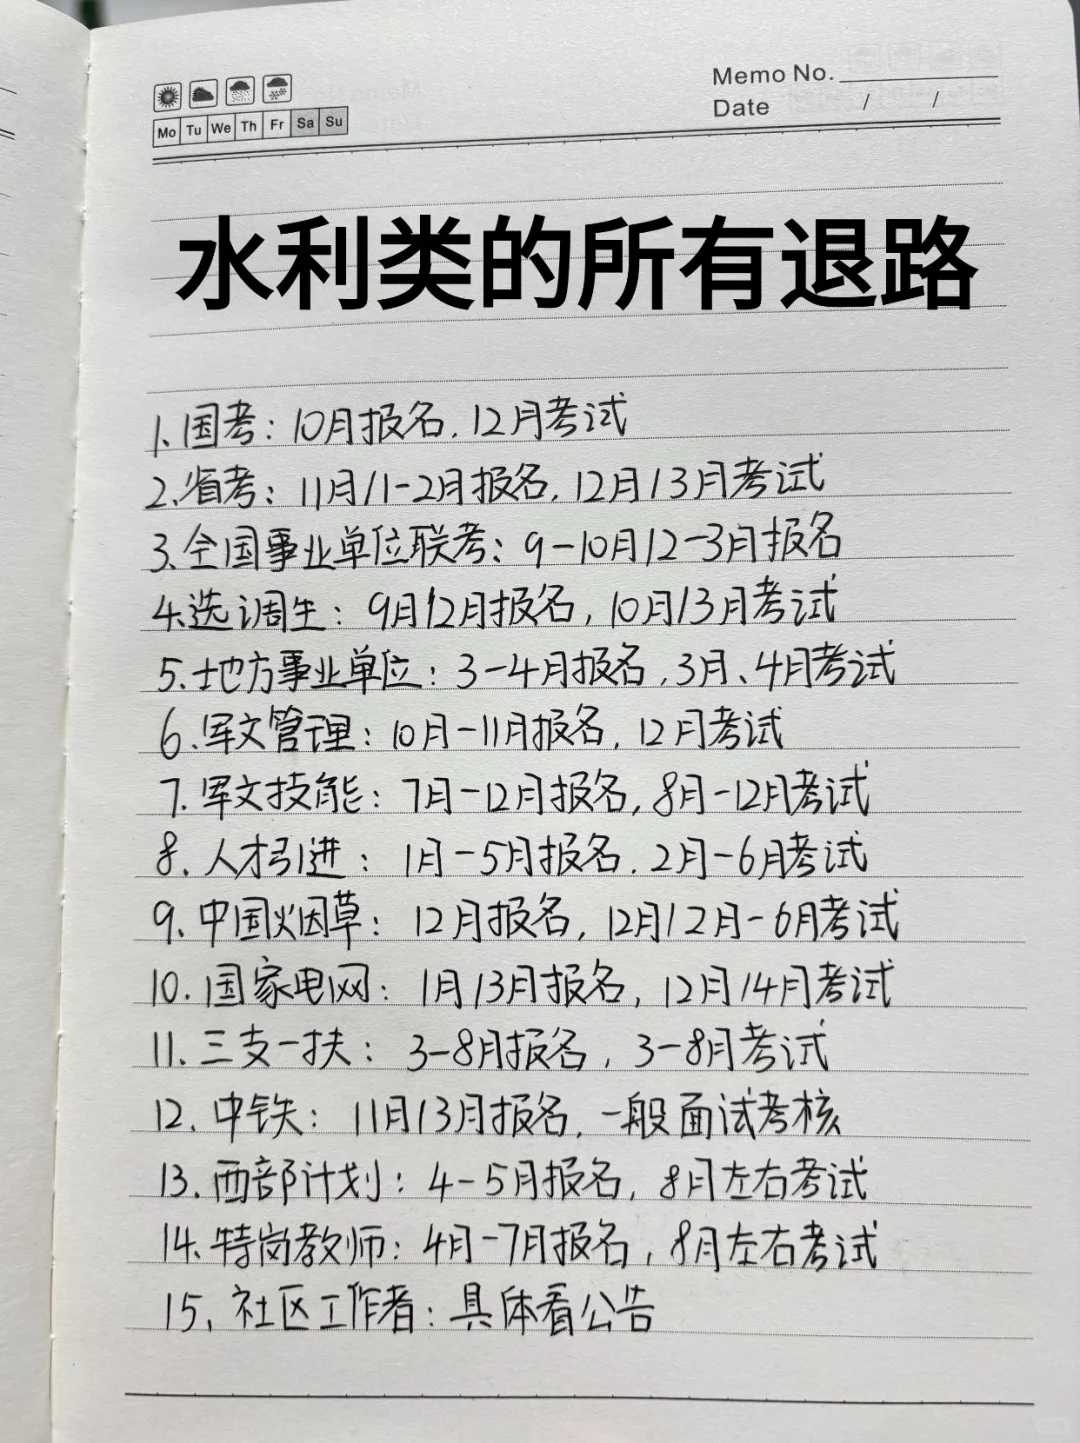 Memo No.
Mo Tu We Th Fr Sa Su
Date / /
水利类的所有退路
1.国考：10月报名，12月考试
2.省考：11月/1-2月报名，12月/3月考试
3.全国事业单位联考：9-10月/2-3月报名
4.选调生：9月/2月报名，10月/3月考试
5.地方事业单位：3-4月报名，3月、4月考试
6.军文管理：10月-11月报名，12月考试
7.军文技能：7月-12月报名，8月-12月考试
8.人才引进：1月-5月报名.2月-6月考试
9.中国烟草：12月报名，12月/2月-6月考试
10.国家电网：1月/3月报名，12月/4月考试
11.三支一扶：3-8月报名，3-8月考试
12.中铁：11月/3月报名，一般面试考核
13.西部计划：4-5月报名，8月左右考试
14.特岗教师：4月-7月报名，8月左右考试
15.社区工作者：具体看公告